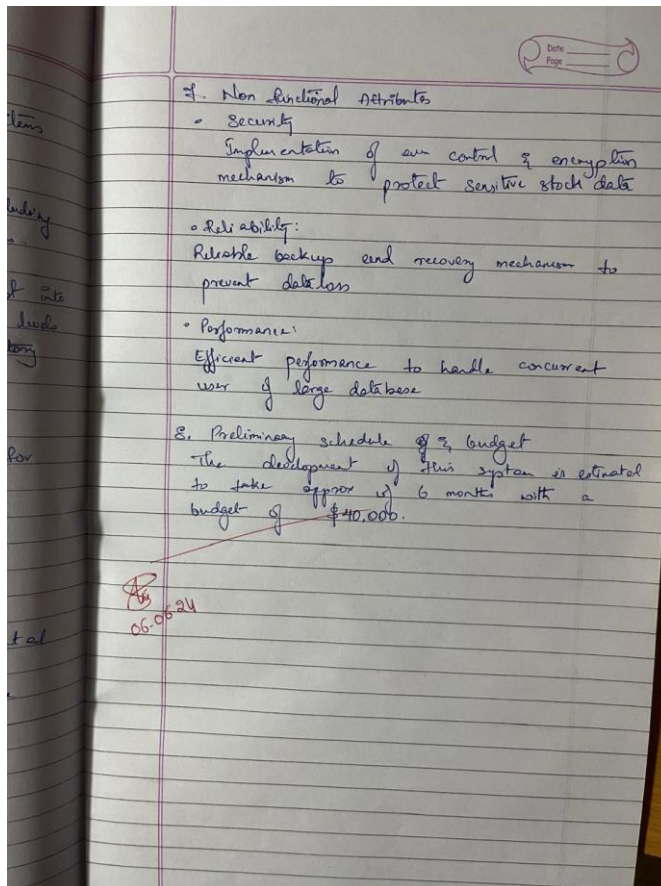 Date
Page
7. Non functional Attributes
• Security
Implementation of control & encryption
mechanism to protect sensitive stock data
• Reliability:
Reliable backup and recovery mechanism to
prevent data loss
• Performance:
Efficient performance to handle concurrent
user of large database
8. Preliminary schedule & budget
The development of this system is estimated
to take approx of 6 months with a
budget of $40,000.
06.06.24
tems
luding
f into
levels
tory
for
tal